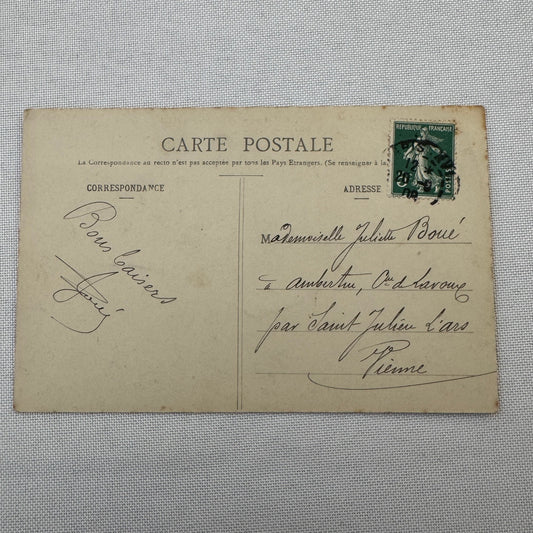 CARTE POSTALE
La Correspondance au recto n'est pas acceptée par tous les Pays Etrangers. (Se renseigner à la
CORRESPONDANCE
ADRESSE
REPUBLIQUE FRANÇAISE
Bons baisers
Mademoiselle Juliette Boué
à Cne de Lavoux
par Saint Julien L'ars
Vienne